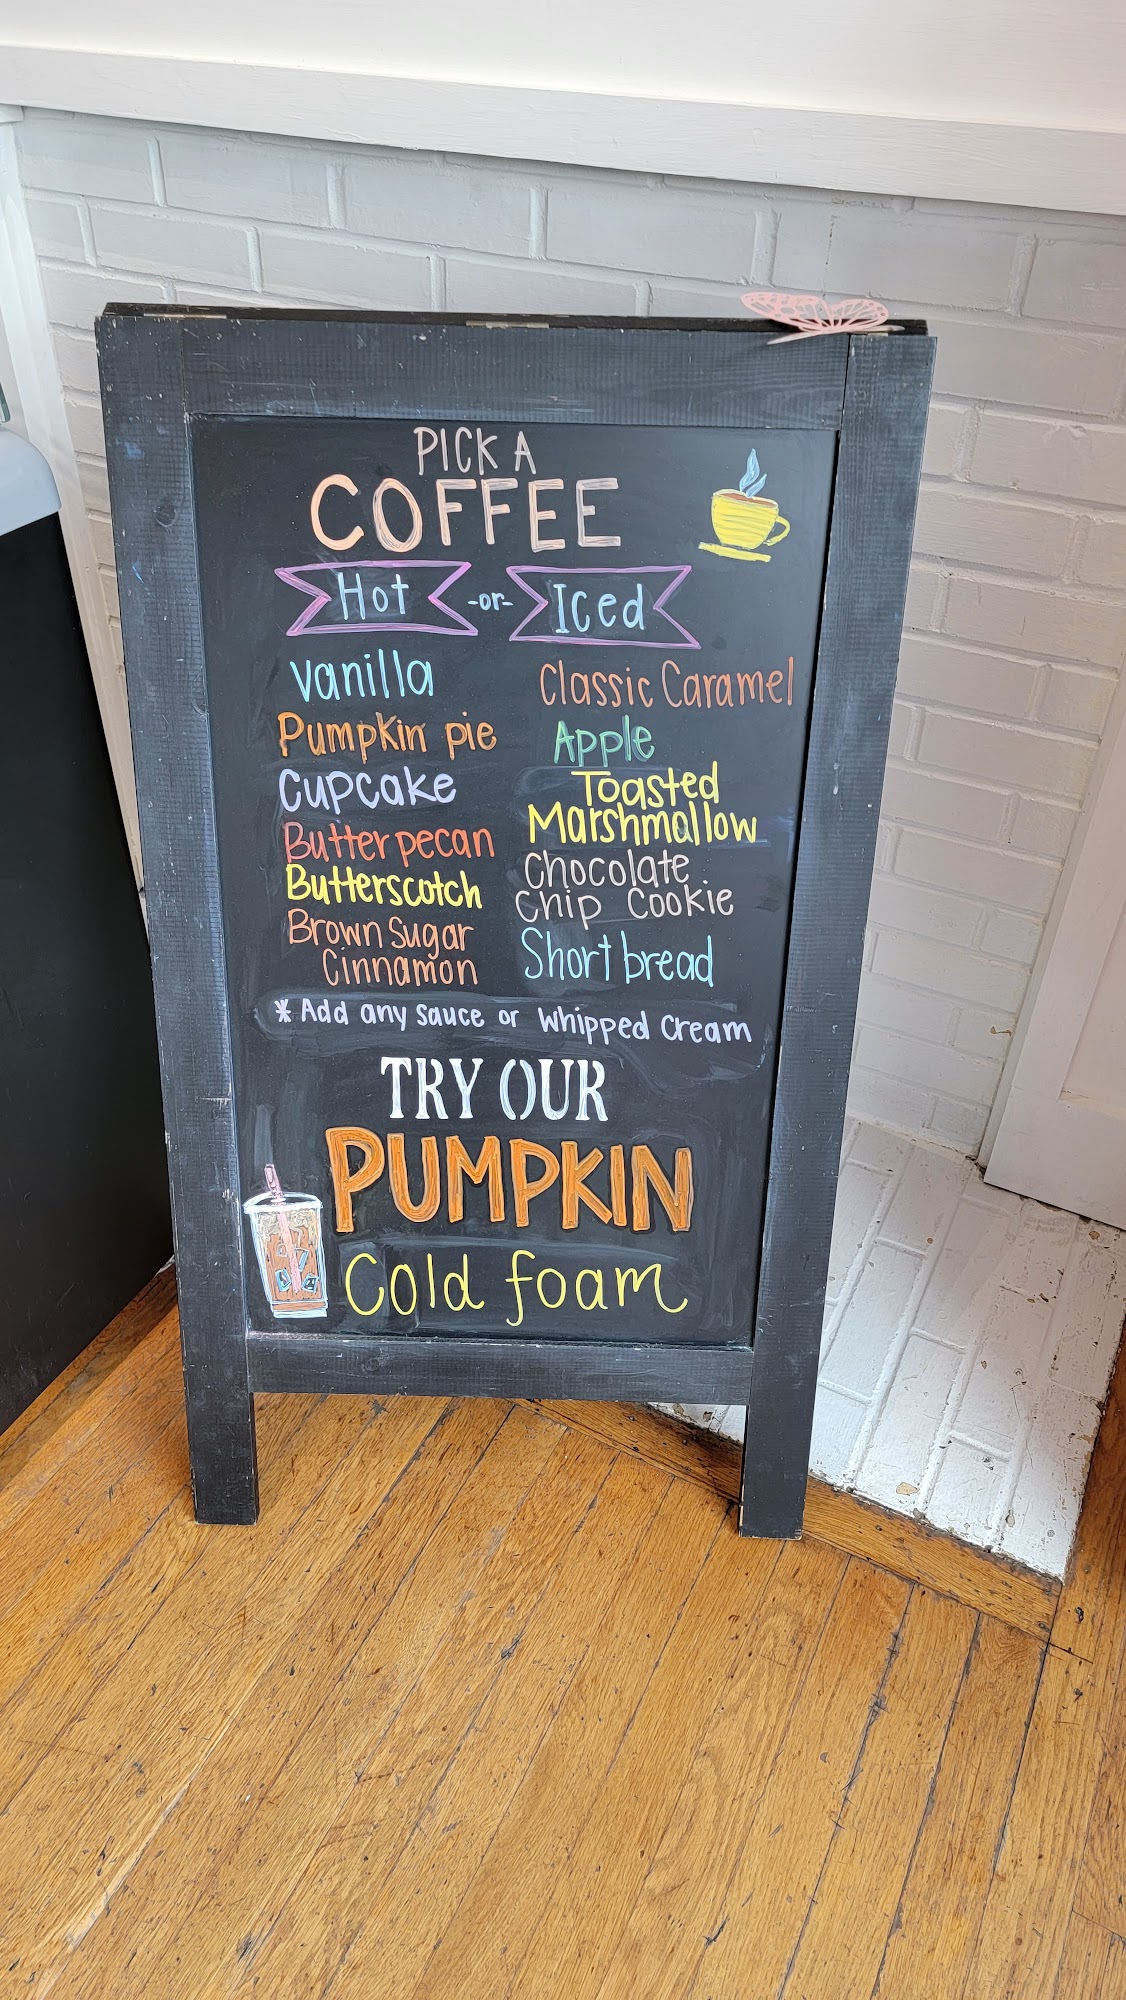 PICK A
COFFEE
Hot -or- Iced
Vanilla
Pumpkin pie
Cupcake
Butter pecan
Butterscotch
Brown Sugar
Cinnamon
Classic Caramel
Apple
Toasted
Marshmallow
Chocolate
Chip Cookie
Shortbread
* Add any sauce or whipped cream
TRY OUR
PUMPKIN
Cold foam